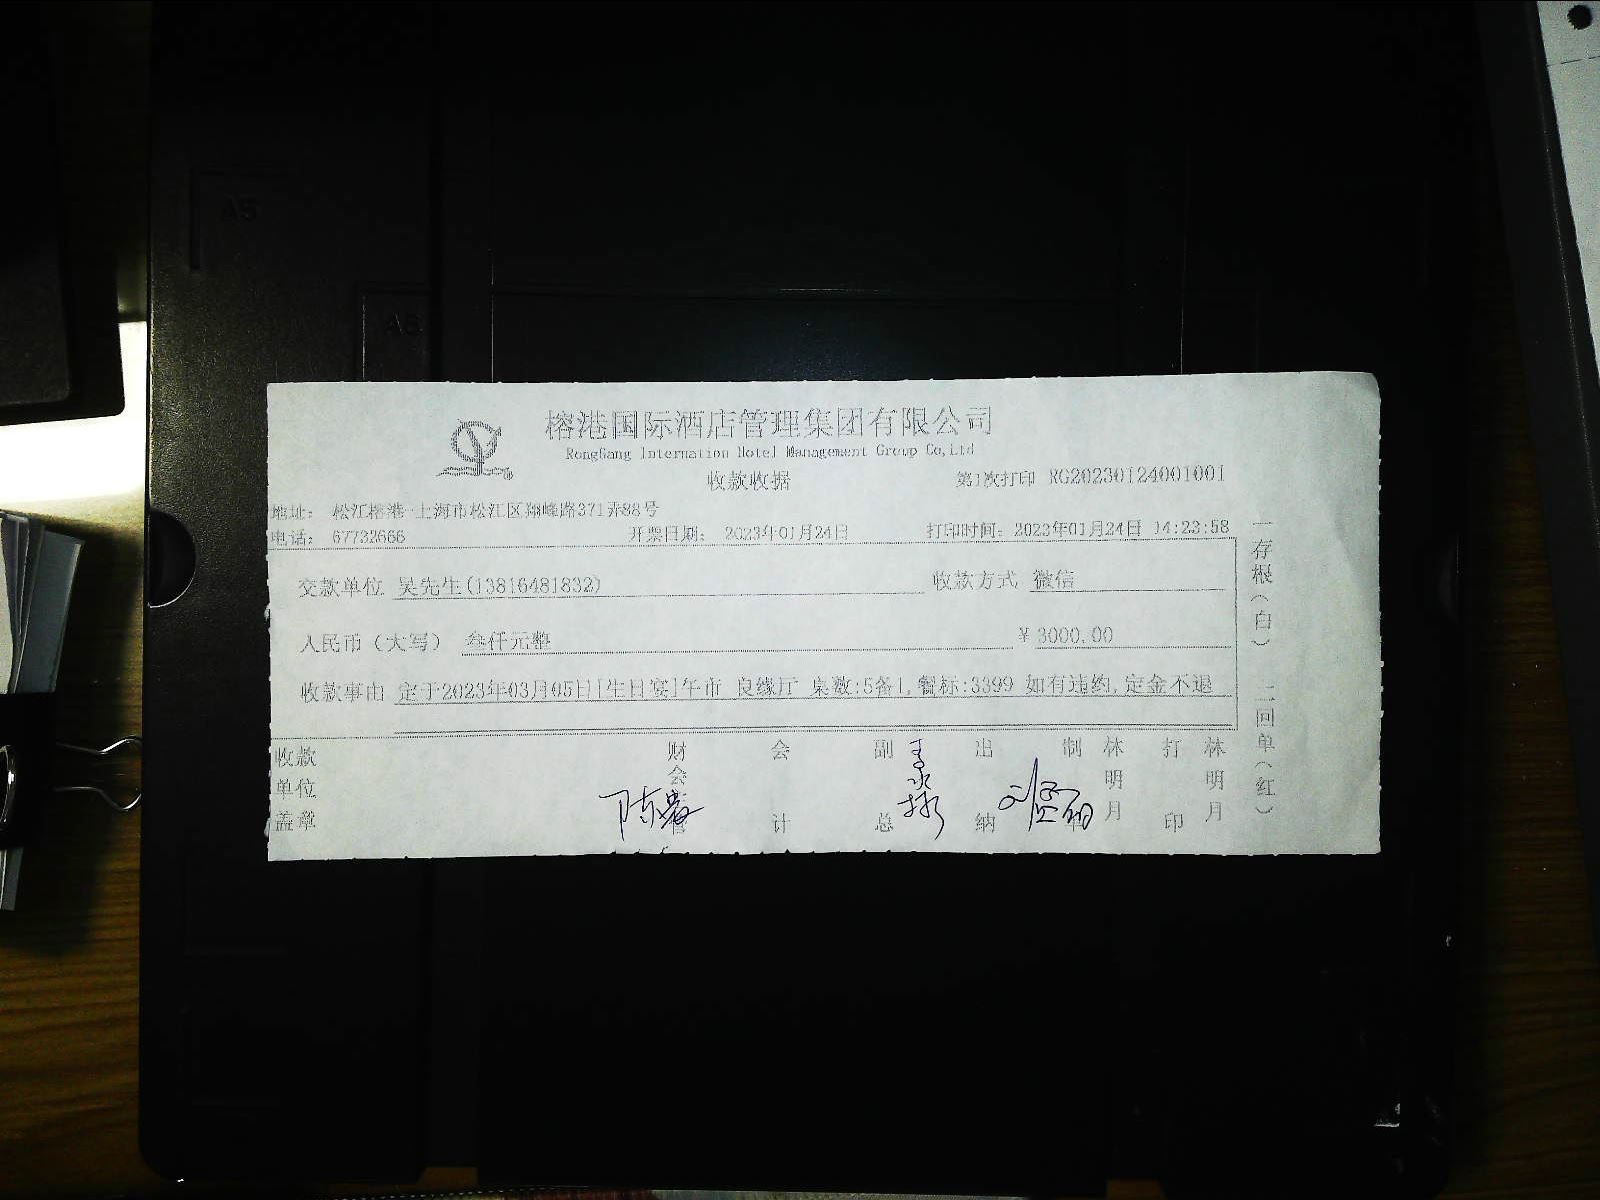 A5
A6
榕港国际酒店管理集团有限公司
RongGang Internation Hotel Management Group Co,Ltd
收款收据
第1次打印 RG20230124001001
地址： 松江榕港-上海市松江区翔峰路371弄88号
电话： 67732666 开票日期： 2023年01月24日 打印时间：2023年01月24日 14:23:58
交款单位 吴先生(13816481832) 收款方式 微信
人民币（大写） 叁仟元整 ¥3000.00
收款事由 定于2023年03月05日[生日宴]午市 良缘厅 桌数:5备1,餐标:3399 如有违约,定金不退
收款单位盖章 财会管 会计 副总 出纳 制单 林明月 打印 林明月
一存根（白） 二回单（红）